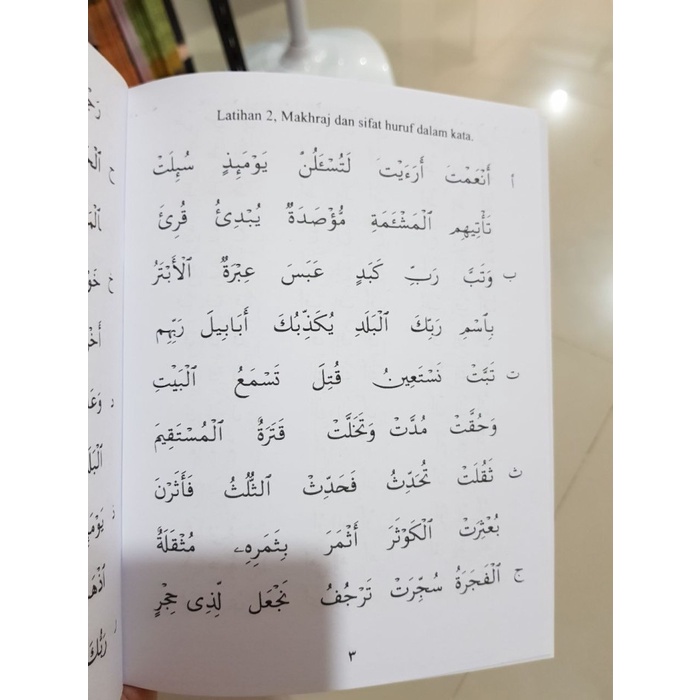 Latihan 2, Makhraj dan sifat huruf dalam kata.
أ أَنْعَمْتَ أَرَءَيْتَ لَتُسْـَٔلُنَّ يَوْمَئِذٍ سُئِلَتْ
تَأْتِيهِم الْمَشْـَٔمَةِ مُّؤْصَدَةٌ يُبْدِئُ قُرِئَ
ب وَتَبَّ رَبِّ كَبَدٍ عَبَسَ عِبْرَةٌ الْأَبْتَرُ
بِاسْمِ رَبِّكَ الْبَلَدِ يُكَذِّبُكَ أَبَابِيلَ رَبِّهِم
ت تَبَّتْ نَسْتَعِينُ قُتِلَ تَسْمَعُ الْبَيْتِ
وَحُقَّتْ مُدَّتْ وَتَخَلَّتْ قَتَرَةٌ الْمُسْتَقِيمَ
ث ثَقُلَتْ تُحَدِّثُ فَحَدِّثْ الثُّلُثُ فَأَثَرْنَ
بُعْثِرَتْ الْكَوْثَرَ أَثْمَرَ بِثَمَرِهِۦ مُثْقَلَةٌ
ج الْفَجَرَةُ سُجِّرَتْ تَرْجُفُ نَجْعَل لِّذِى حِجْرٍ
٣
رَبُّكَ